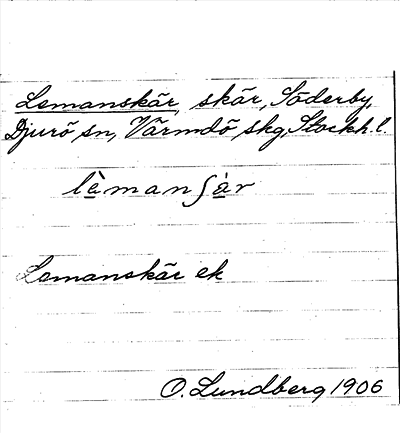 Lemanskär, skär, Söderby,
Djurö sn, Värmdö skg, Stockh. l.
lèmanʃàr
Lemanskär ek
O. Lundberg 1906